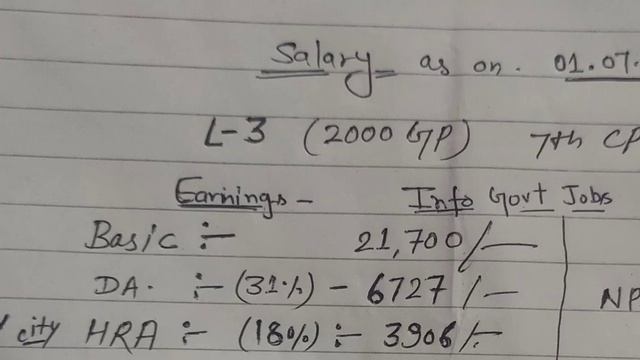 Salary as on. 01.07.
L-3 (2000 GP) 7th CP
Earnings - Info Govt Jobs
Basic :- 21,700/-
DA. :- (31%) - 6727/- NP
city HRA :- (18%) :- 3906/-